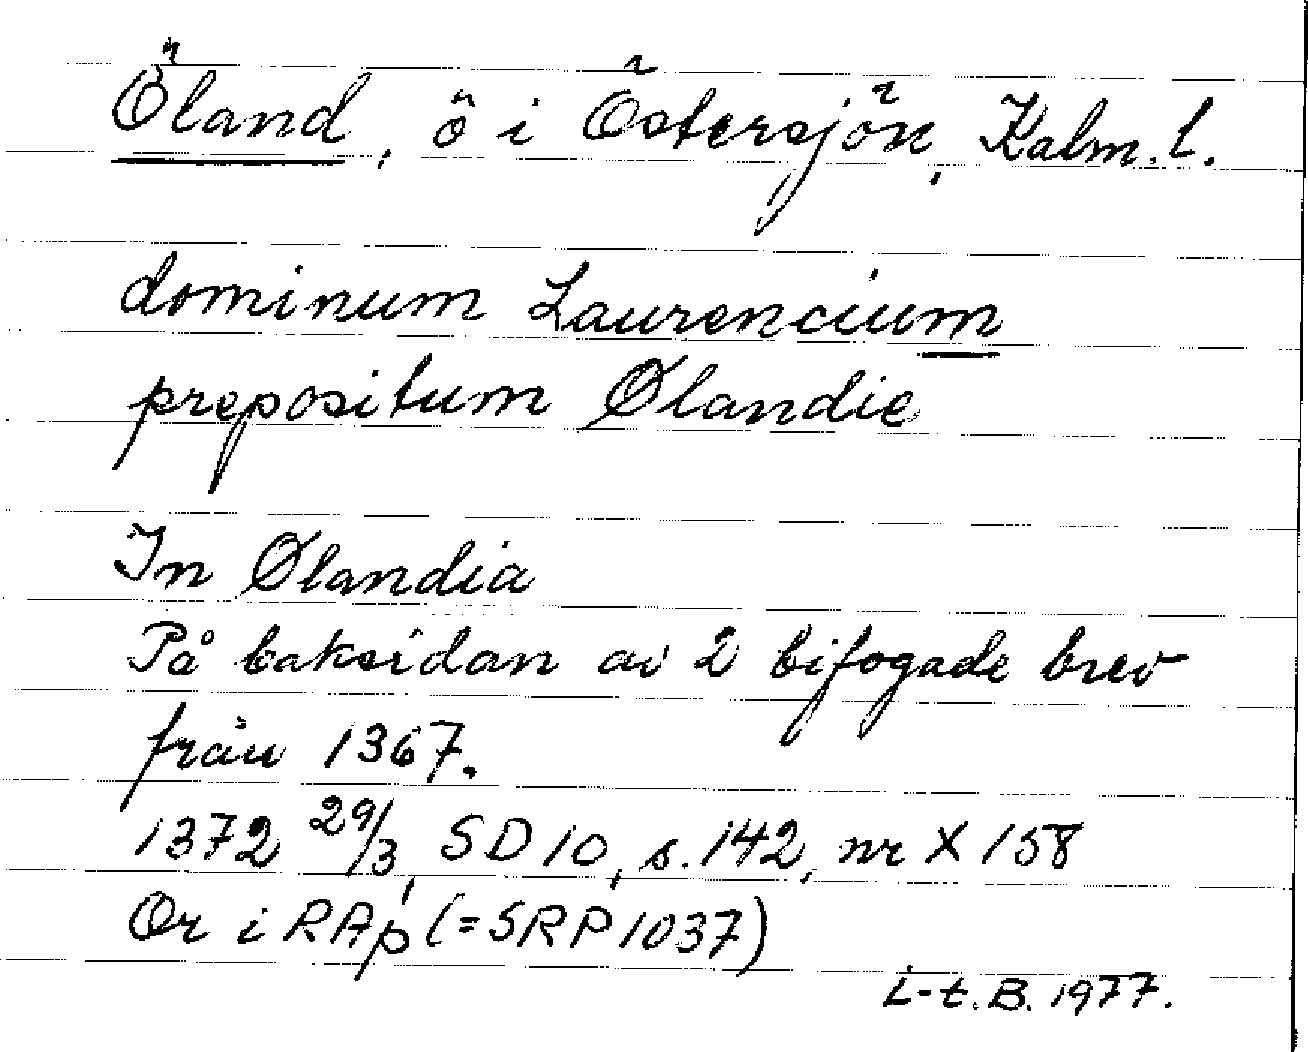 Öland, ö i Östersjön, Kalm. l.
dominum Laurencium
prepositum Ølandie
In Ølandia
På baksidan av 2 bifogade brev
från 1367.
1372 29/3, SD 10, s. 142, nr X 158
Or i RAp (=SRP 1037)
L-t. B. 1977.